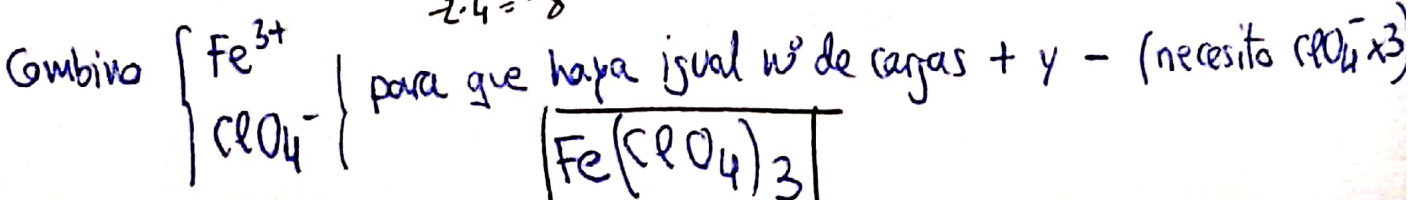 -2·4 = 8
Combino { Fe³⁺ ClO₄⁻ } para que haya igual nº de cargas + y - (necesito ClO₄⁻ x3)
Fe(ClO₄)₃